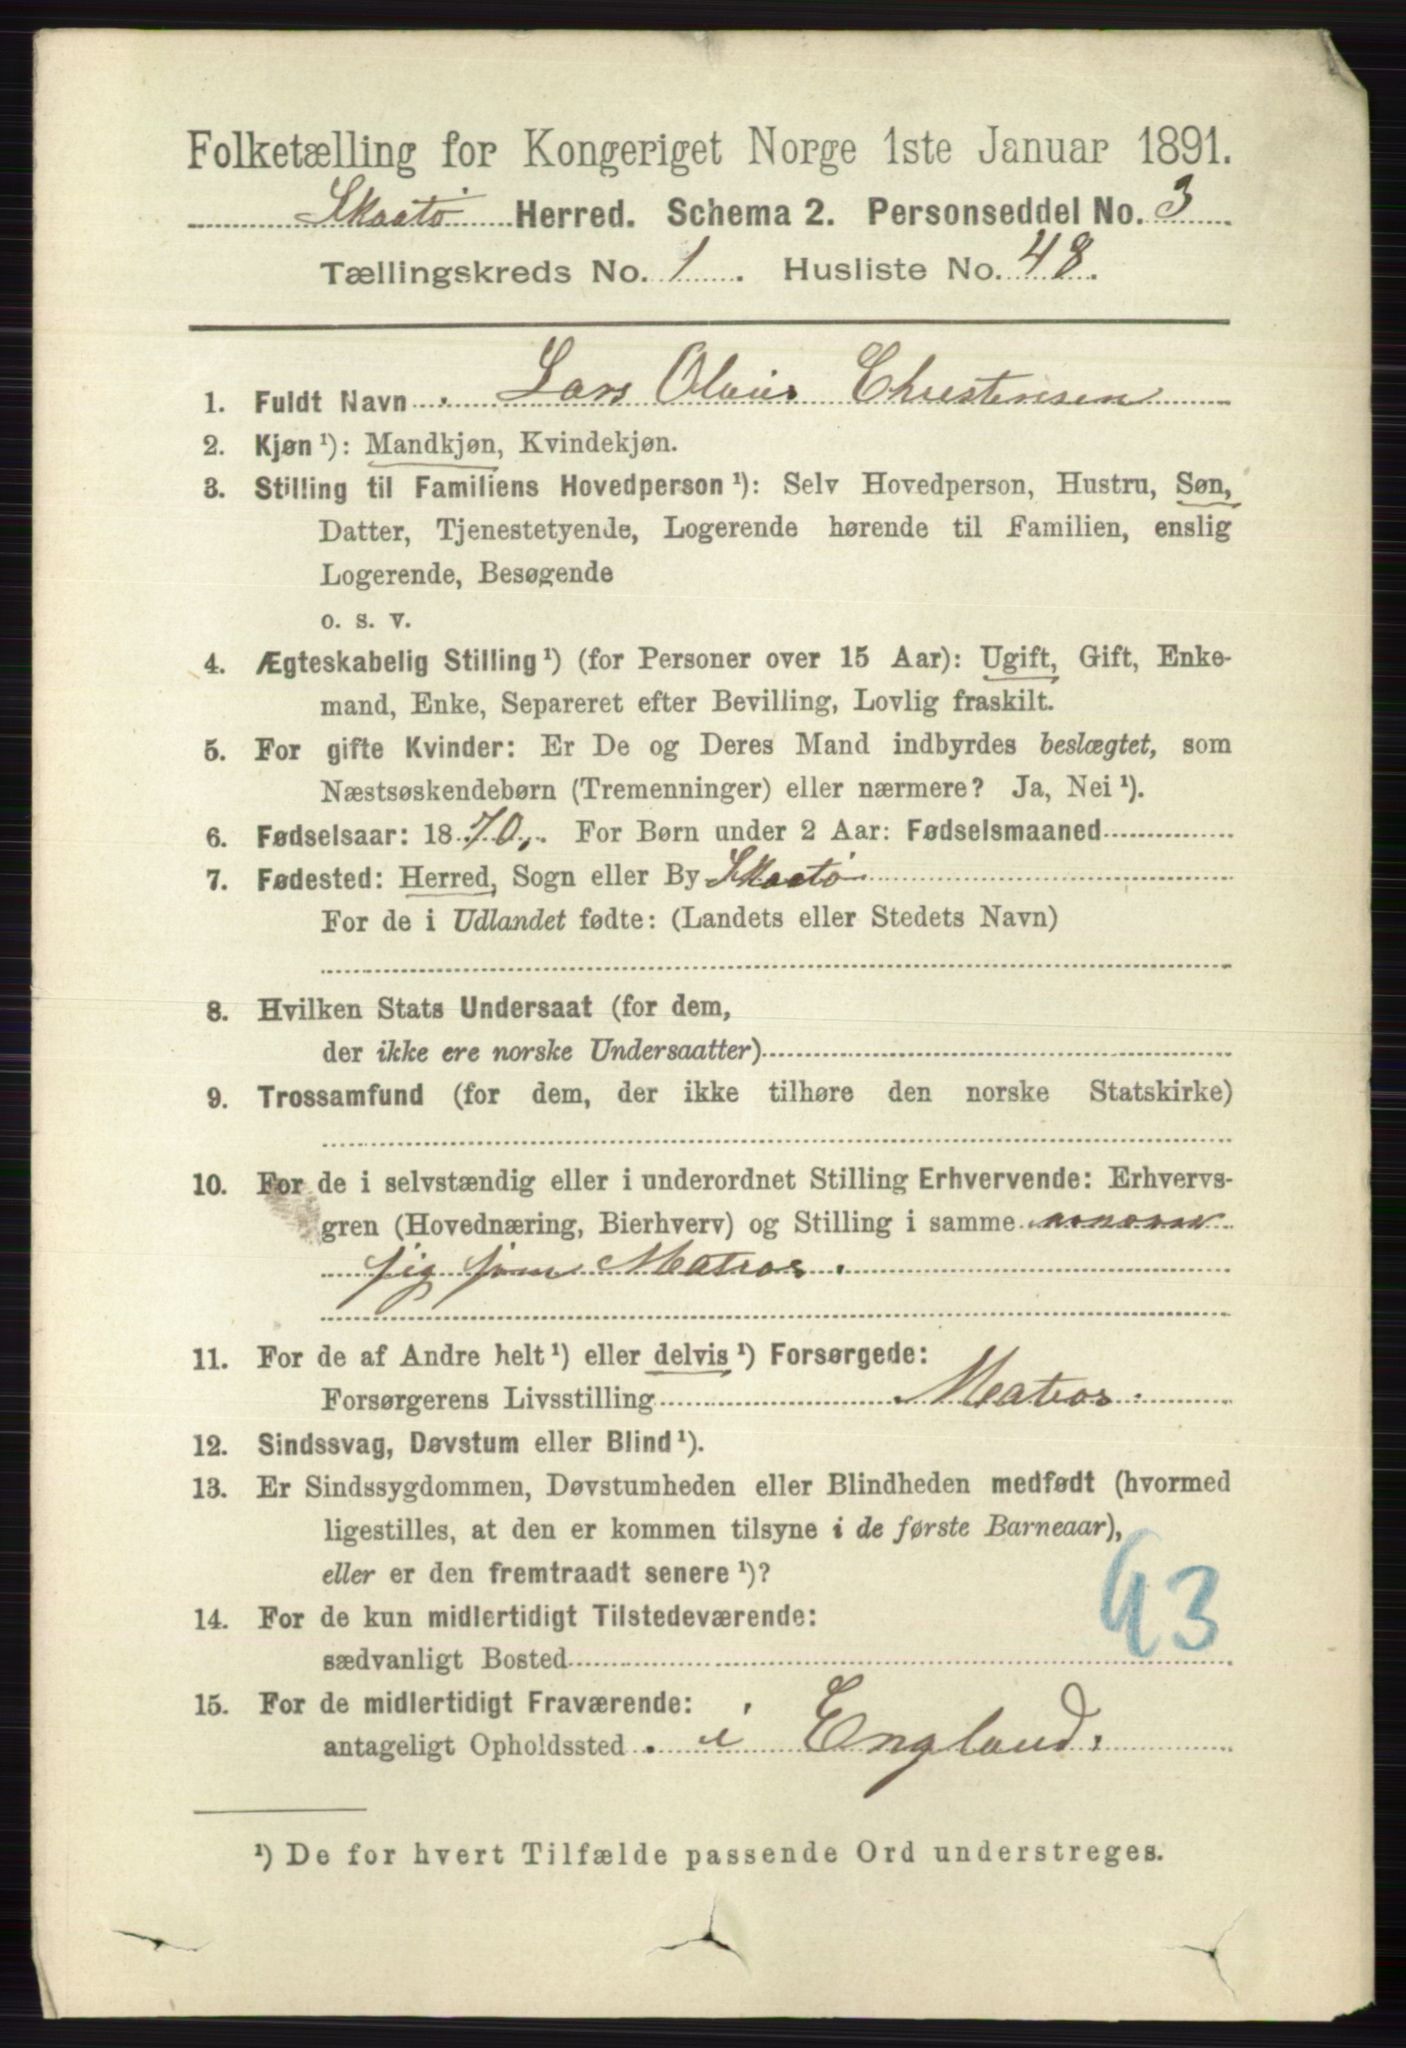 Folketælling for Kongeriget Norge 1ste Januar 1891.
Skaatø Herred. Schema 2. Personseddel No. 3
Tællingskreds No. 1. Husliste No. 48.
1. Fuldt Navn Lars Olaus Christensen
2. Kjøn ¹): Mandkjøn, Kvindekjøn.
3. Stilling til Familiens Hovedperson ¹): Selv Hovedperson, Hustru, Søn,
Datter, Tjenestetyende, Logerende hørende til Familien, enslig
Logerende, Besøgende
o. s. v.
4. Ægteskabelig Stilling ¹) (for Personer over 15 Aar): Ugift, Gift, Enke-
mand, Enke, Separeret efter Bevilling, Lovlig fraskilt.
5. For gifte Kvinder: Er De og Deres Mand indbyrdes beslægtet, som
Næstsøskendebørn (Tremenninger) eller nærmere? Ja, Nei ¹).
6. Fødselsaar: 1870, For Børn under 2 Aar: Fødselsmaaned
7. Fødested: Herred, Sogn eller By Skaatø
For de i Udlandet fødte: (Landets eller Stedets Navn)
8. Hvilken Stats Undersaat (for dem,
der ikke ere norske Undersaatter)
9. Trossamfund (for dem, der ikke tilhøre den norske Statskirke)
10. For de i selvstændig eller i underordnet Stilling Erhvervende: Erhvervs-
gren (Hovednæring, Bierhverv) og Stilling i samme
sig som Matros.
11. For de af Andre helt ¹) eller delvis ¹) Forsørgede:
Forsørgerens Livsstilling Matros.
12. Sindssvag, Døvstum eller Blind ¹).
13. Er Sindssygdommen, Døvstumheden eller Blindheden medfødt (hvormed
ligestilles, at den er kommen tilsyne i de første Barneaar),
eller er den fremtraadt senere ¹)?
43
14. For de kun midlertidigt Tilstedeværende:
sædvanligt Bosted
15. For de midlertidigt Fraværende:
antageligt Opholdssted i England.
¹) De for hvert Tilfælde passende Ord understreges.